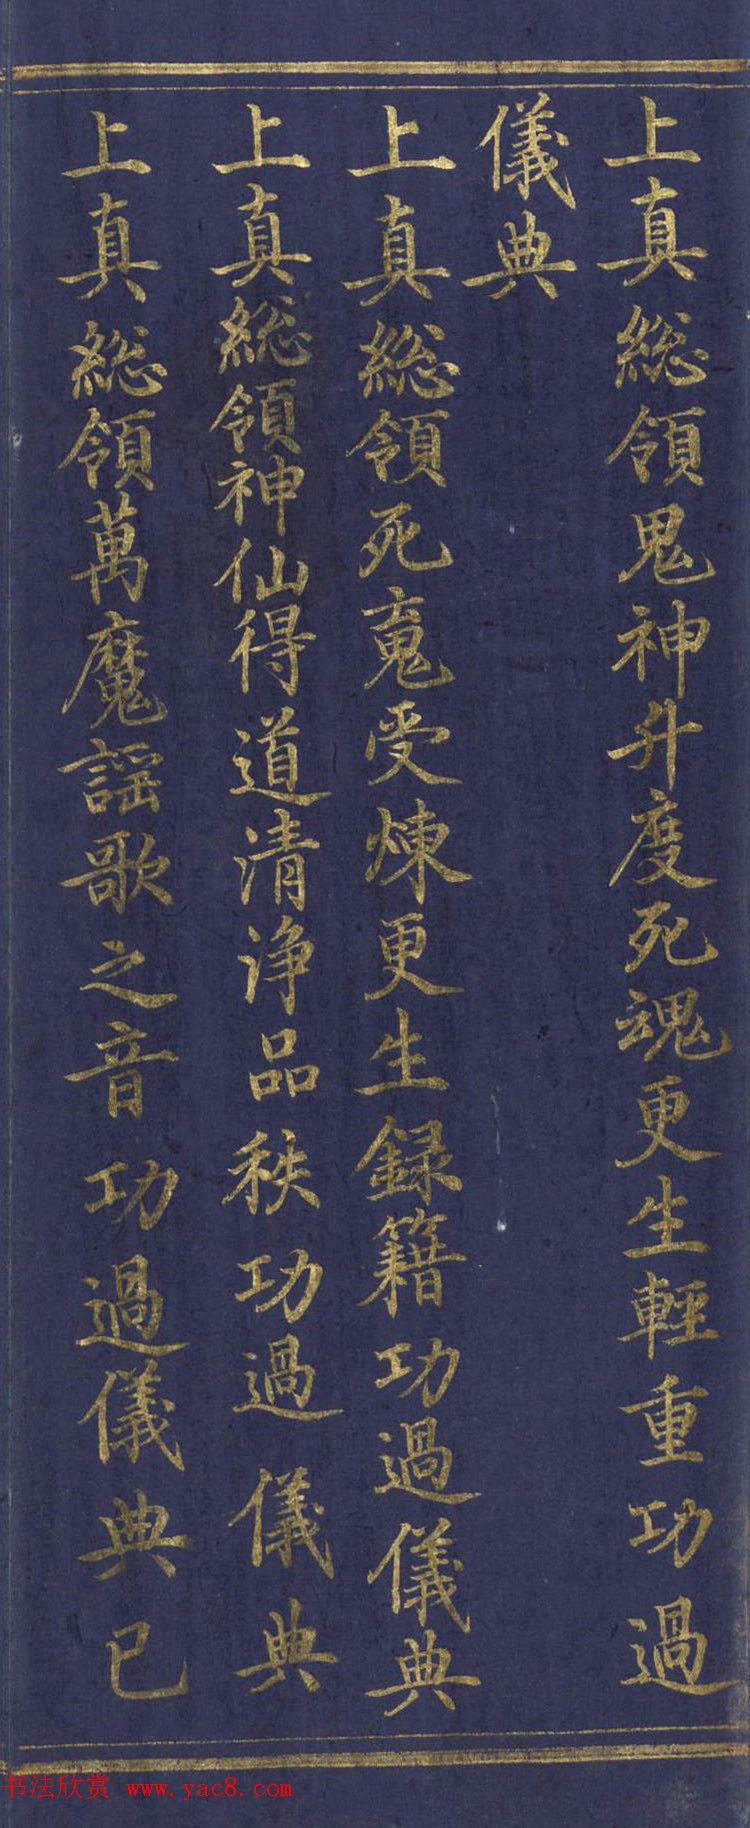 上真總領鬼神升度死魂更生輕重功過
儀典
上真總領死䰟受煉更生録籍功過儀典
上真總領神仙得道清浄品秩功過儀典
上真總領萬魔謡歌之音功過儀典已
书法欣赏 www.yac8.com